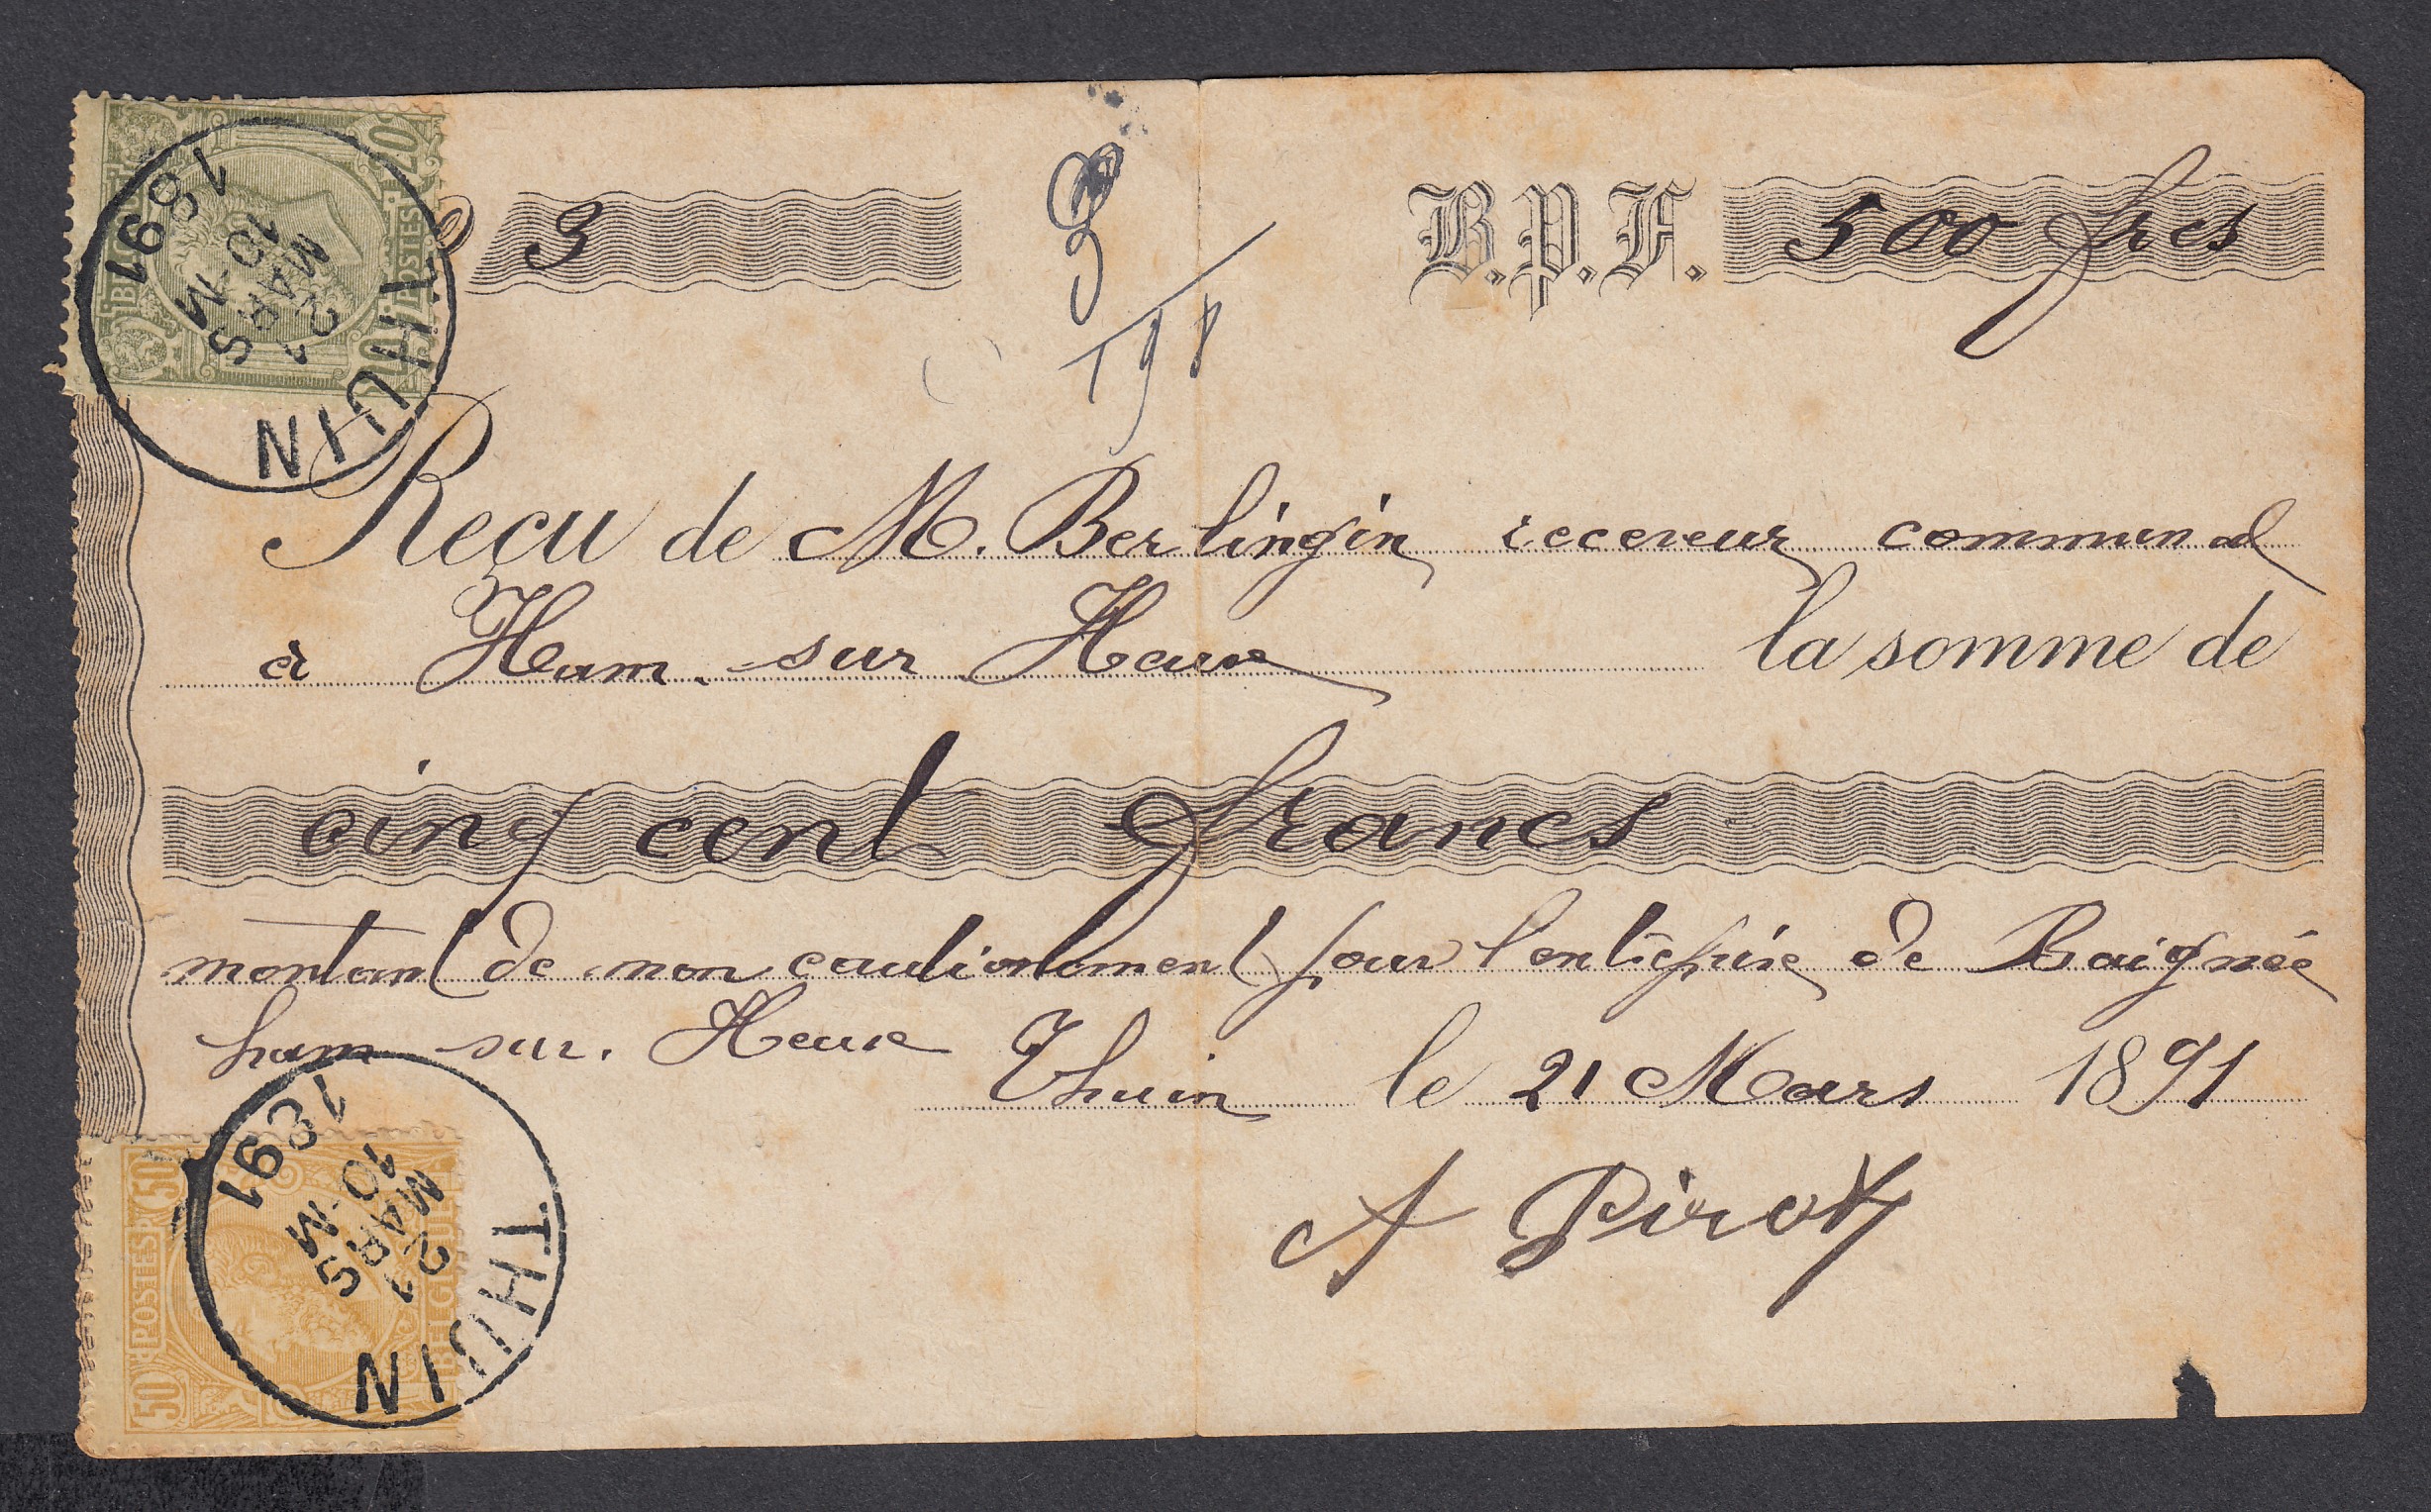 3 3 B.P.F. 500 frcs
198
Reçu de M. Berlingin receveur communal
à Ham-sur Heure la somme de
cinq cent francs
montant de mon cautionnement pour l'entreprise de Baignée
ham sur. Heure Thuin le 21 Mars 1891
A Pirot
THUIN
21
MARS
10-M
1891
20
POSTES
THUIN
21
MARS
10-M
1891
50 POSTES 50